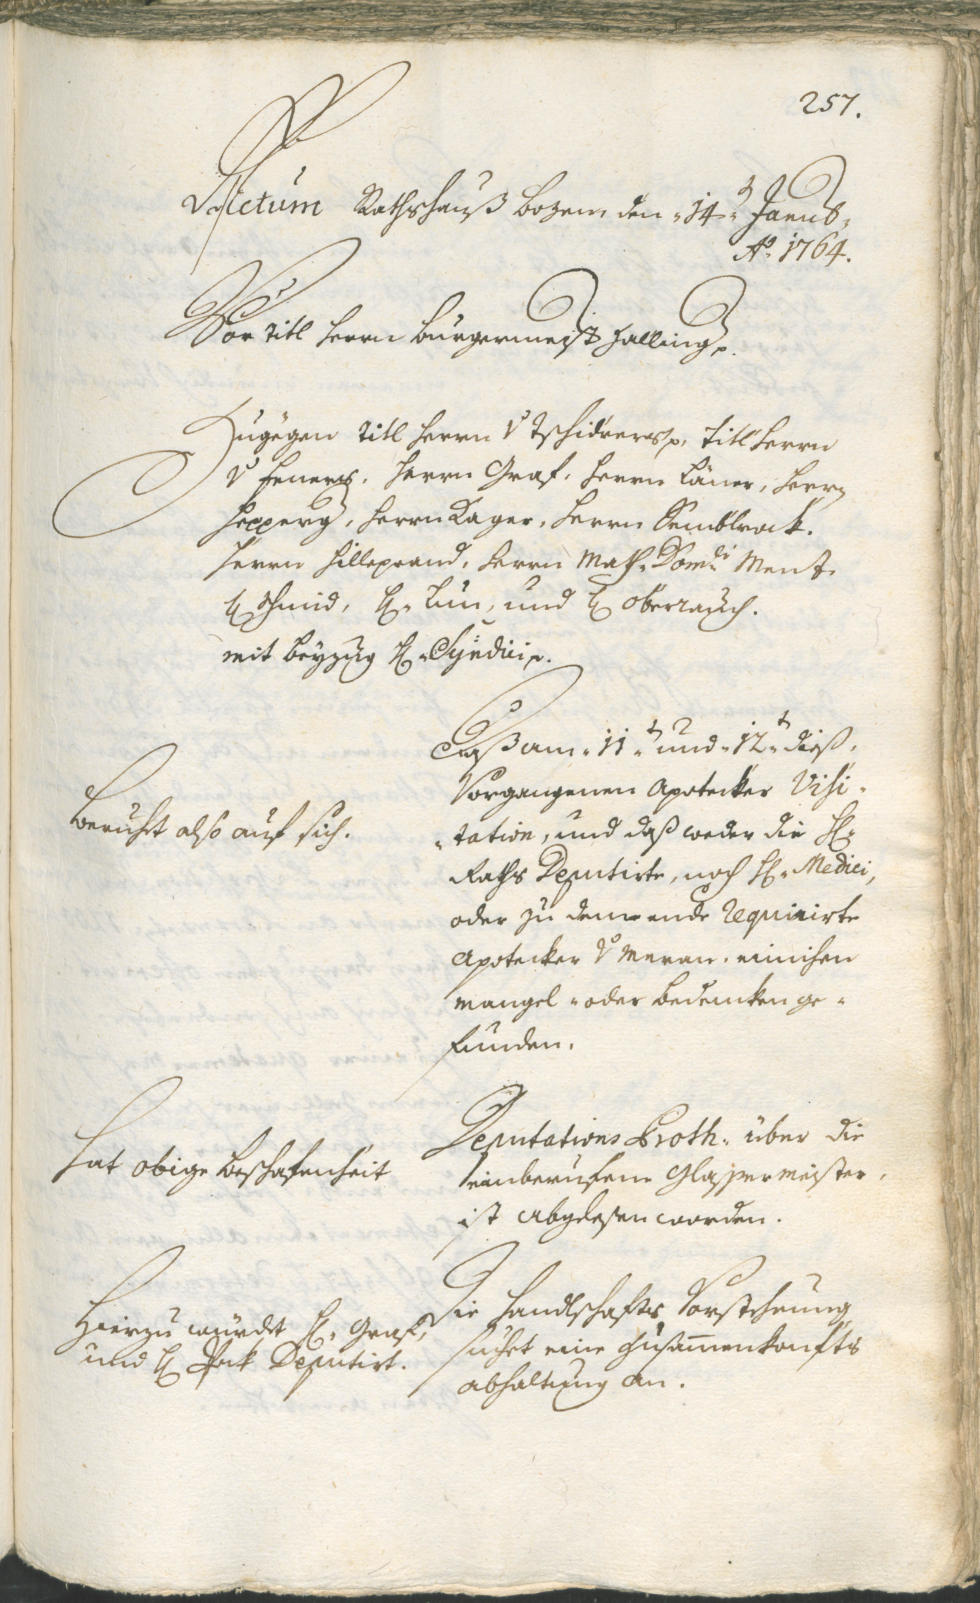 257.
Actum Rathshauß Bozen den 14.ᵗ Janua.
Aº 1764.
Vor Titl Herrn Bürgermeist Halling p.
Zugegen Titl Herrn v Tschiderer p, Titl Herrn
v Feners. Herrn Graf, Herrn Läner, Herrn
Hepperg, Herrn Kager, Herrn Semblrock.
Herrn Hilleprand, Herrn Math. Domdi Ment.
H Schmid, H. Lun, und H Oberrauch.
mit Beyzug H. Syndici p.
Daß am 11.ᵗ und 12.ᵗ dieß,
Vorgangenen Apotecker Visi-
tation, und daß weder die H:
Raths Deputirte, noch H. Medici,
oder zu deme ende requirirte
Apotecker v Meran. einichen
mangel oder bedencken ge-
funden.
Beruht also auf sich.
Deputations Proth. über die
einberufene Glasser meister
ist abgelesen worden.
Hat obige Beschafenheit
Die Handlschafts Vorstehung
suchet eine Zusamenkonfts
abhaltung an.
Hierzu würdt H. Graf,
und H Pock Deputirt.